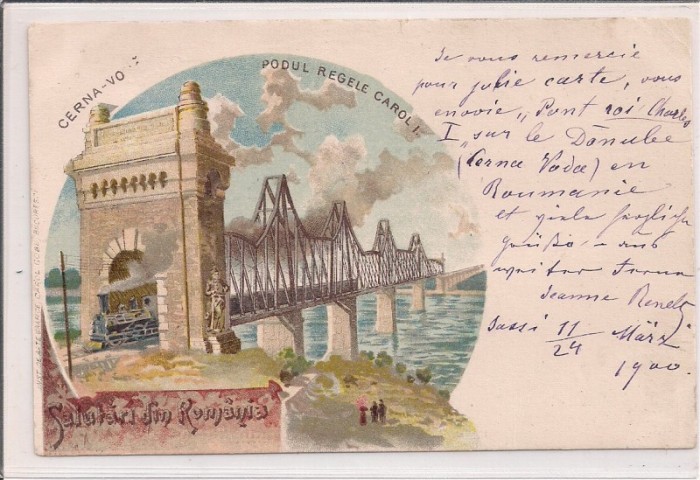 CERNA-VO
PODUL REGELE CAROL I.
Salutări din România
Je vous remercie
pour jolie carte, vous
envoie „Pont roi Charles
I„ sur le Danube
(Cerna Voda) en
Roumanie
et viele herzliche
grüße aus
weiter Ferne
Jeanne
Jassi 11/24 März
1900.